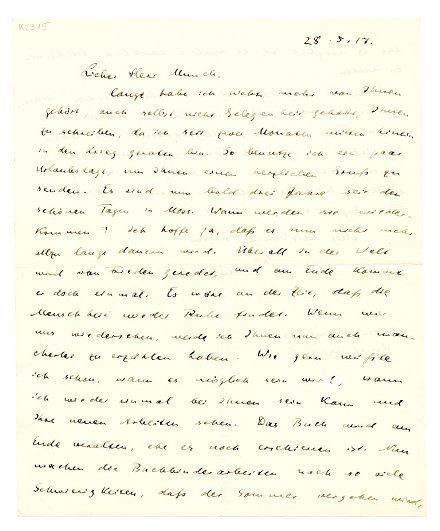 K2315
28. 3. 17.
Lieber Herr Munch.
lange habe ich nichts mehr von Ihnen
gehört, auch selbst nicht Gelegenheit gehabt, Ihnen
zu schreiben, da ich seit zwei Monaten mitten hinein
in den Krieg geraten bin. So benutze ich ein paar
Urlaubstage, um Ihnen einen herzlichen Gruß zu
senden. Es sind nun bald drei Jahre seit den
schönen Tagen in Moss. Wann werden sie wieder
kommen? Ich hoffe ja, daß es nun nicht mehr
allzu lange dauern wird. Überall in der Welt
wird von Frieden geredet, und am Ende kommt
er doch einmal. Es wäre an der Zeit, daß die
Menschheit wieder Ruhe findet. Wenn wir
uns wiedersehen, werde ich Ihnen nun auch man-
cherlei zu erzählen haben. Wie gern wüßte
ich schon, wann es möglich sein wird, wann
ich wieder einmal bei Ihnen sein kann und
Ihre neuen Arbeiten sehen. Das Buch wird am
Ende veralten, ehe es noch erschienen ist. Nun
machen die Buchbinderarbeiten noch so viele
Schwierigkeiten, daß der Sommer vergehen wird,